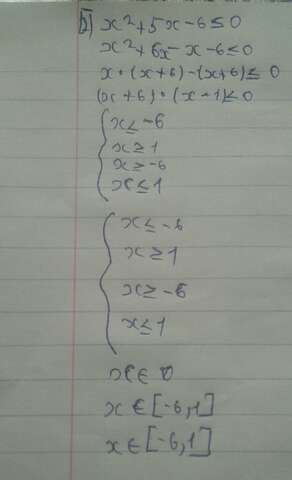 б) x² + 5x - 6 ≤ 0
x² + 6x - x - 6 ≤ 0
x · (x + 6) - (x + 6) ≤ 0
(x + 6) · (x - 1) ≤ 0
x ≤ -6
x ≥ 1
x ≥ -6
x ≤ 1
x ≤ -6
x ≥ 1
x ≥ -6
x ≤ 1
x ∈ 0
x ∈ [-6, 1]
x ∈ [-6, 1]